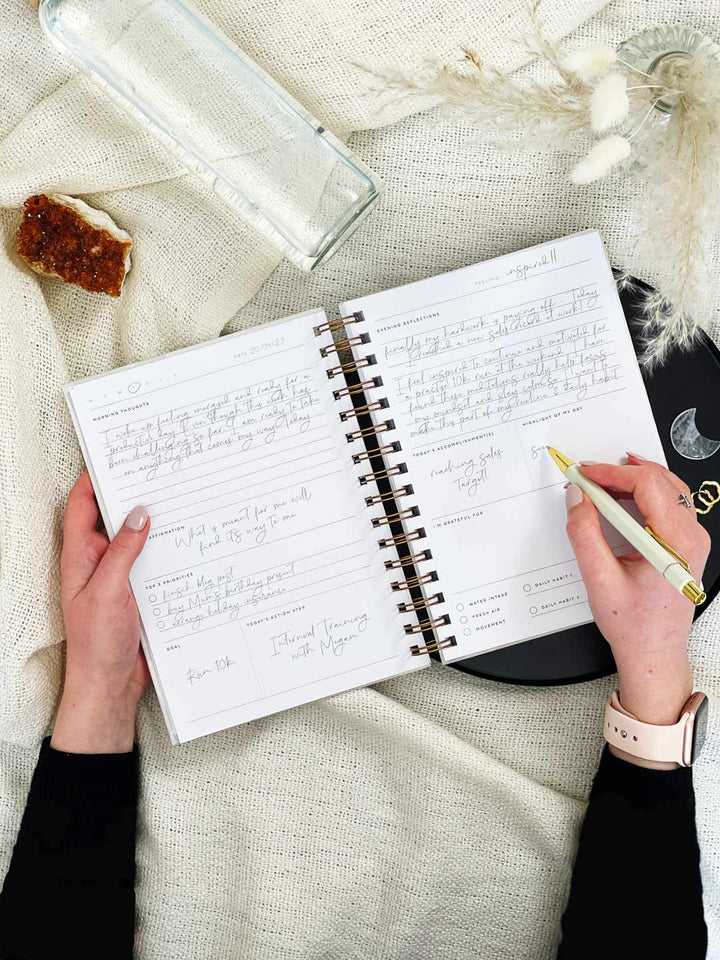 M T W T F S S
DATE 20/04/23
MORNING THOUGHTS
I woke up feeling energised and ready for a
productive day. Even though this week has
been challenging so far, I am ready to take
on anything that comes my way today
AFFIRMATION
What is meant for me will
find it's way to me
TOP 3 PRIORITIES
finish blog post
buy Mum's birthday present
arrange holiday insurance
GOAL
Run 10k
TODAY'S ACTION STEP
Interval Training
with Megan
FEELING inspired!!
EVENING REFLECTIONS
Finally my hardwork is paying off. Today
I reached a new sales record at work!
I feel inspired to continue and motivated for
a practise 10k run at the weekend. I have
found these meditations really help focus
my mindset and stay calm so I want to
make this part of my routine & daily habit
TODAY'S ACCOMPLISHMENT(S)
reaching sales
target!
HIGHLIGHT OF MY DAY
I'M GRATEFUL FOR
WATER INTAKE
FRESH AIR
MOVEMENT
DAILY HABIT 1:
DAILY HABIT 2: